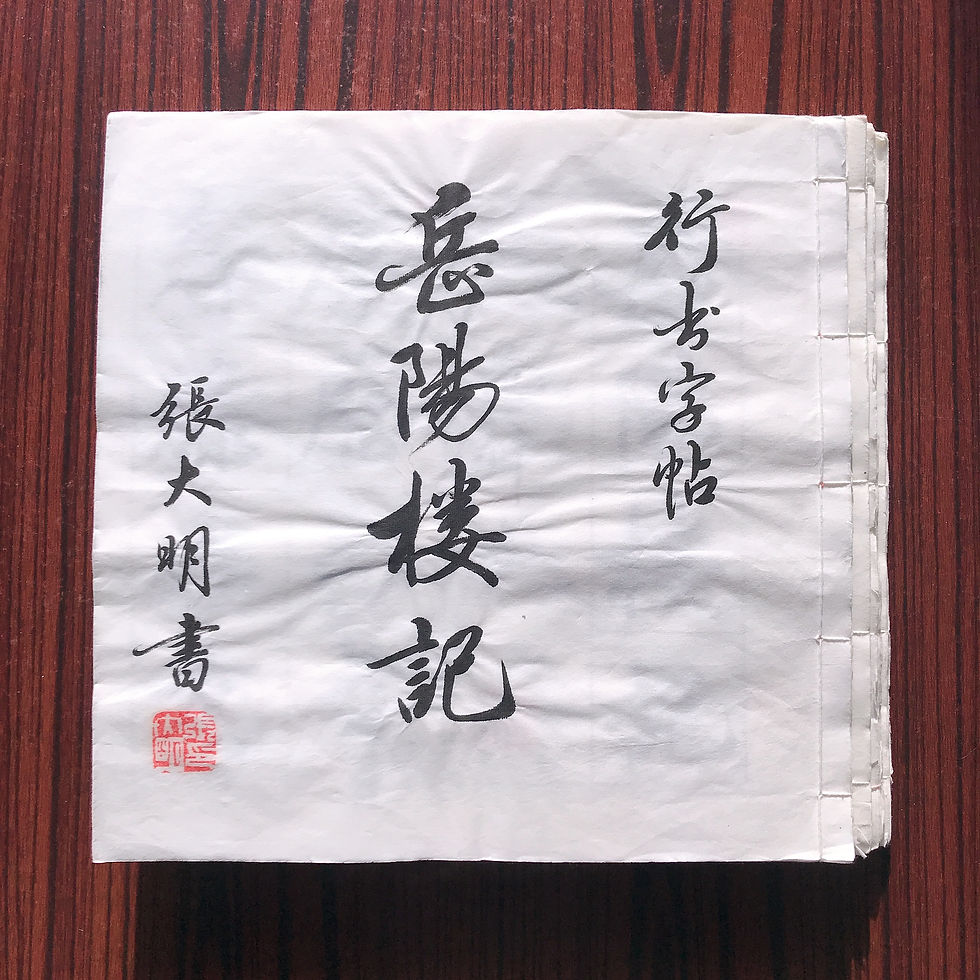 行书字帖
岳陽楼記
張大明書
張印大明